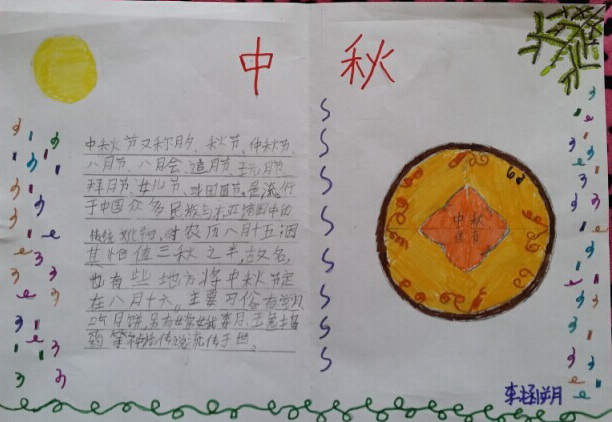 中 秋
中秋节又称月夕、秋节、仲秋节、
八月节、八月会、追月节、玩月节、
拜月节、女儿节、或团圆节,是流行
于中国众多民族与
农历八月十五
其恰值三秋之半,故名,
也有些地方将中秋节定
在八月十六。主要习俗有赏月
吃月饼 另有嫦娥奔月、玉兔捣
药等神话传说流传于世。
中秋
李涵朔